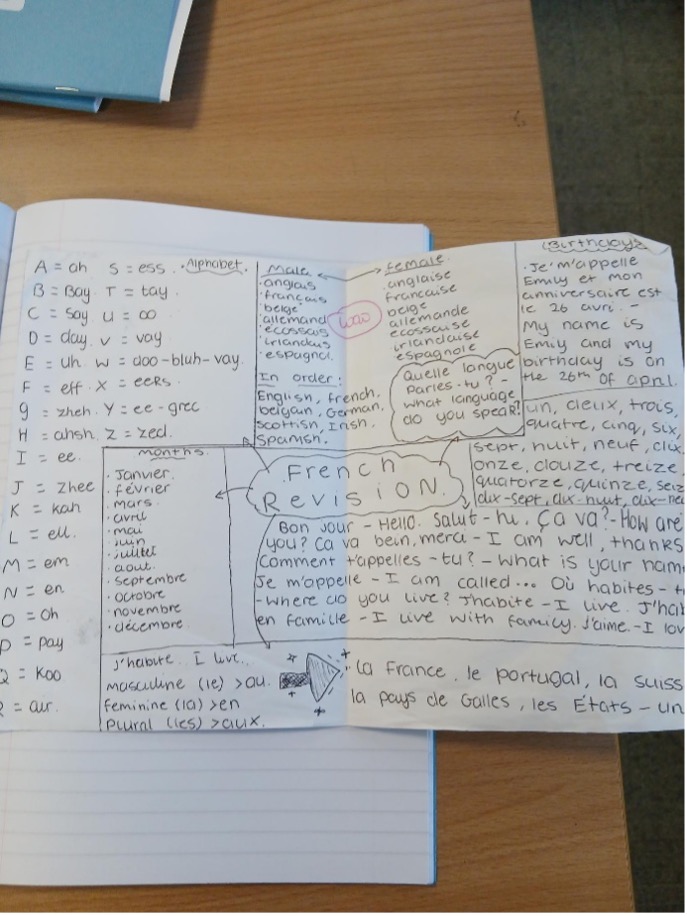 A = ah S = ess. Alphabet.
B = Bay. T = tay.
C = Say. U = oo
D = day. V = vay
E = uh. W = doo-bluh-vay.
F = eff. X = eeks.
g = zheh. Y = ee-grec
H = ahsh. Z = zed.
I = ee.
J = zhee
K = kah
L = ell.
M = em
N = en
O = oh
P = pay
Q = Koo
R = air.
Male.
anglais
français
belge
allemand
ecossais
irlandais
espagnol.
In order:
English, french.
belgain, German.
Scottish, Irish.
Spanish.
female.
anglaise
francaise
belge
allemande
ecossaise
irlandaise
espagnole
Quelle langue
parles-tu? -
what language
do you speak?
Birthdays
Je m'appelle
Emily et mon
anniversaire est
le 26 avri. -
My name is
Emily and my
birthday is on
the 26th of april.
un, deux, trois,
quatre, cinq, six,
sept, huit, neuf, dix
onze, douze, treize,
quatorze, quinze, seiz
dix-sept, dix-huit, dix-ne
months.
Janvier.
février
mars
avril
mai
juin
juillet
aout.
septembre
octobre
novembre
décembre.
French
Revision.
Bon jour - Hello. Salut - hi. Ça va? - How are
you? Ca va bein, merci - I am well, thanks
Comment t'appelles - tu? - What is your nam
Je m'appelle - I am called... Où habites - t
- Where do you live? J'habite - I live. J'hab
en famille - I live with family. J'aime. - I lov
J'habite. I live..
masculine (le) > au.
feminine (la) > en
Plural (les) > aux.
La France, le portugal, la suiss
la pays de Galles, les États - un